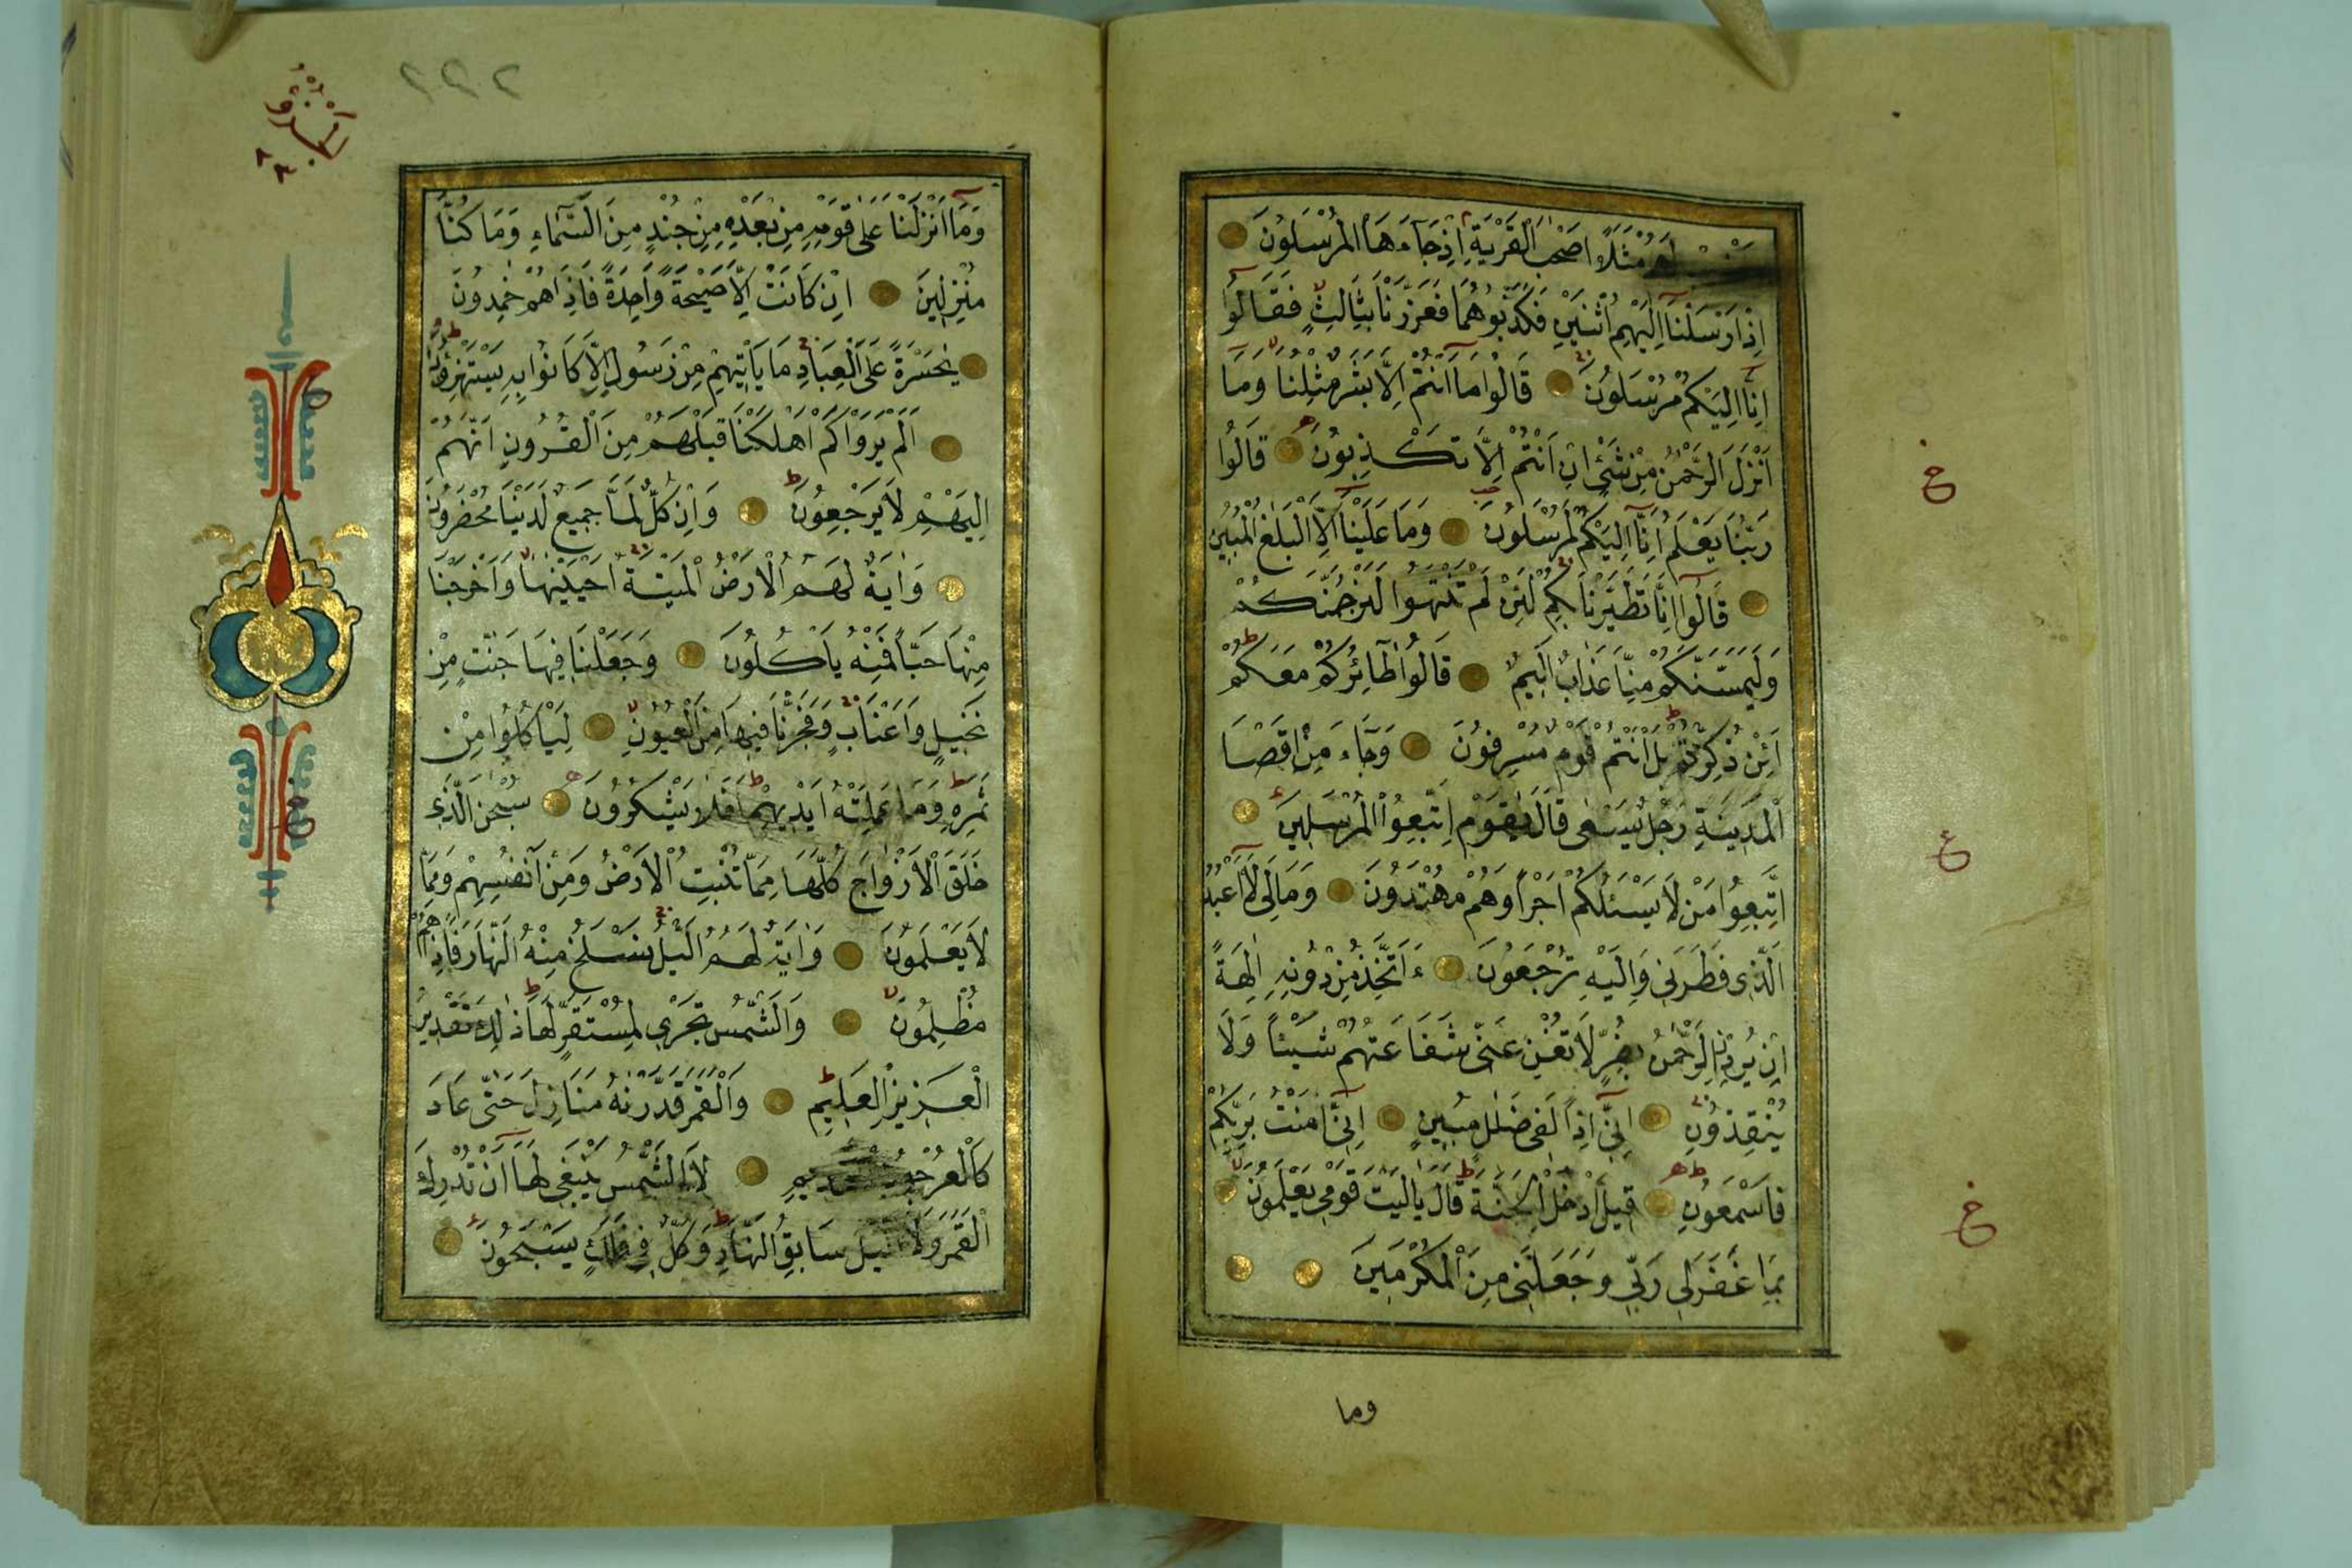 لَهُمْ مَثَلًا اَصْحٰبَ الْقَرْيَةِ اِذْ جَاءَهَا الْمُرْسَلُونَ
اِذْ اَرْسَلْنَا اِلَيْهِمُ اثْنَيْنِ فَكَذَّبُوهُمَا فَعَزَّزْنَا بِثَالِثٍ فَقَالُوا
اِنَّا اِلَيْكُمْ مُرْسَلُونَ قَالُوا مَا اَنْتُمْ اِلَّا بَشَرٌ مِثْلُنَا وَمَا
اَنْزَلَ الرَّحْمٰنُ مِنْ شَيْءٍ اِنْ اَنْتُمْ اِلَّا تَكْذِبُونَ قَالُوا
رَبُّنَا يَعْلَمُ اِنَّا اِلَيْكُمْ لَمُرْسَلُونَ وَمَا عَلَيْنَا اِلَّا الْبَلٰغُ الْمُبِينُ
قَالُوا اِنَّا تَطَيَّرْنَا بِكُمْ لَئِنْ لَمْ تَنْتَهُوا لَنَرْجُمَنَّكُمْ
وَلَيَمَسَّنَّكُمْ مِنَّا عَذَابٌ اَلِيمٌ قَالُوا طَائِرُكُمْ مَعَكُمْ
اَئِنْ ذُكِّرْتُمْ بَلْ اَنْتُمْ قَوْمٌ مُسْرِفُونَ وَجَاءَ مِنْ اَقْصَا
الْمَدِينَةِ رَجُلٌ يَسْعٰى قَالَ يٰقَوْمِ اتَّبِعُوا الْمُرْسَلِينَ
اتَّبِعُوا مَنْ لَا يَسْئَلُكُمْ اَجْرًا وَهُمْ مُهْتَدُونَ وَمَا لِيَ لَا اَعْبُدُ
الَّذِي فَطَرَنِي وَاِلَيْهِ تُرْجَعُونَ ءَاَتَّخِذُ مِنْ دُونِهِ اٰلِهَةً
اِنْ يُرِدْنِ الرَّحْمٰنُ بِضُرٍّ لَا تُغْنِ عَنِّي شَفَاعَتُهُمْ شَيْئًا وَلَا
يُنْقِذُونِ اِنِّي اِذًا لَفِي ضَلٰلٍ مُبِينٍ اِنِّي اٰمَنْتُ بِرَبِّكُمْ
فَاسْمَعُونِ قِيلَ ادْخُلِ الْجَنَّةَ قَالَ يَا لَيْتَ قَوْمِي يَعْلَمُونَ
بِمَا غَفَرَ لِي رَبِّي وَجَعَلَنِي مِنَ الْمُكْرَمِينَ
وما
ع
وَمَا اَنْزَلْنَا عَلٰى قَوْمِهِ مِنْ بَعْدِهِ مِنْ جُنْدٍ مِنَ السَّمَاءِ وَمَا كُنَّا
مُنْزِلِينَ اِنْ كَانَتْ اِلَّا صَيْحَةً وَاحِدَةً فَاِذَا هُمْ خٰمِدُونَ
يٰحَسْرَةً عَلَى الْعِبَادِ مَا يَأْتِيهِمْ مِنْ رَسُولٍ اِلَّا كَانُوا بِهِ يَسْتَهْزِؤُنَ
اَلَمْ يَرَوْا كَمْ اَهْلَكْنَا قَبْلَهُمْ مِنَ الْقُرُونِ اَنَّهُمْ
اِلَيْهِمْ لَا يَرْجِعُونَ وَاِنْ كُلٌّ لَمَّا جَمِيعٌ لَدَيْنَا مُحْضَرُونَ
وَاٰيَةٌ لَهُمُ الْاَرْضُ الْمَيْتَةُ اَحْيَيْنٰهَا وَاَخْرَجْنَا
مِنْهَا حَبًّا فَمِنْهُ يَأْكُلُونَ وَجَعَلْنَا فِيهَا جَنّٰتٍ مِنْ
نَخِيلٍ وَاَعْنَابٍ وَفَجَّرْنَا فِيهَا مِنَ الْعُيُونِ لِيَأْكُلُوا مِنْ
ثَمَرِهِ وَمَا عَمِلَتْهُ اَيْدِيهِمْ اَفَلَا يَشْكُرُونَ سُبْحٰنَ الَّذِي
خَلَقَ الْاَزْوَاجَ كُلَّهَا مِمَّا تُنْبِتُ الْاَرْضُ وَمِنْ اَنْفُسِهِمْ وَمِمَّا
لَا يَعْلَمُونَ وَاٰيَةٌ لَهُمُ الَّيْلُ نَسْلَخُ مِنْهُ النَّهَارَ فَاِذَا هُمْ
مُظْلِمُونَ وَالشَّمْسُ تَجْرِي لِمُسْتَقَرٍّ لَهَا ذٰلِكَ تَقْدِيرُ
الْعَزِيزِ الْعَلِيمِ وَالْقَمَرَ قَدَّرْنٰهُ مَنَازِلَ حَتّٰى عَادَ
كَالْعُرْجُونِ الْقَدِيمِ لَا الشَّمْسُ يَنْبَغِي لَهَا اَنْ تُدْرِكَ
الْقَمَرَ وَلَا الَّيْلُ سَابِقُ النَّهَارِ وَكُلٌّ فِي فَلَكٍ يَسْبَحُونَ